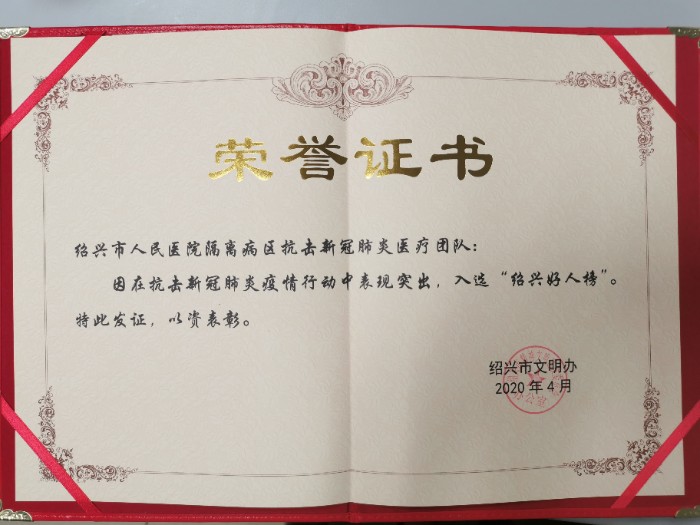 荣誉证书
绍兴市人民医院隔离病区抗击新冠肺炎医疗团队：
因在抗击新冠肺炎疫情行动中表现突出，入选“绍兴好人榜”。
特此发证，以资表彰。
绍兴市文明办
2020年4月